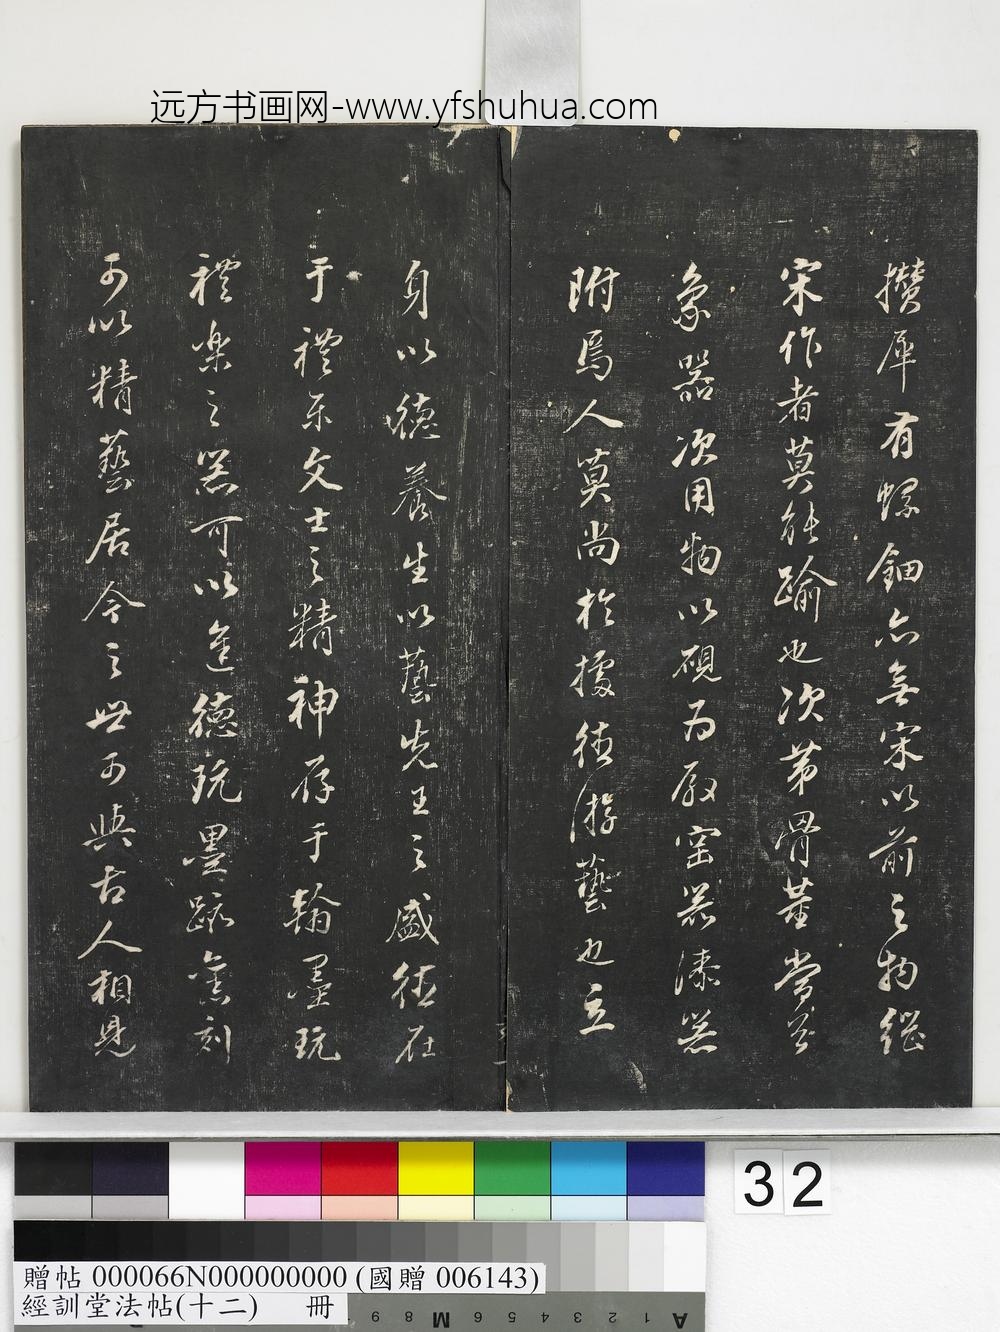 远方书画网-www.yfshuhua.com
攢犀有螺鈿亦無宋以前之物繼
宋作者莫能踰也次第骨董當
象器次用物以硯為殿窑器漆器
附焉人莫尚於據德游藝也立
身以德養生以藝先王之盛德在
于禮樂文士之精神存于翰墨玩
禮樂之器可以進德玩墨跡舊刻
可以精藝居今之世可與古人相見
32
贈帖 000066N000000000 (國贈 006143)
經訓堂法帖(十二) 冊
8 9 M 6 5 4 3 2 1 A